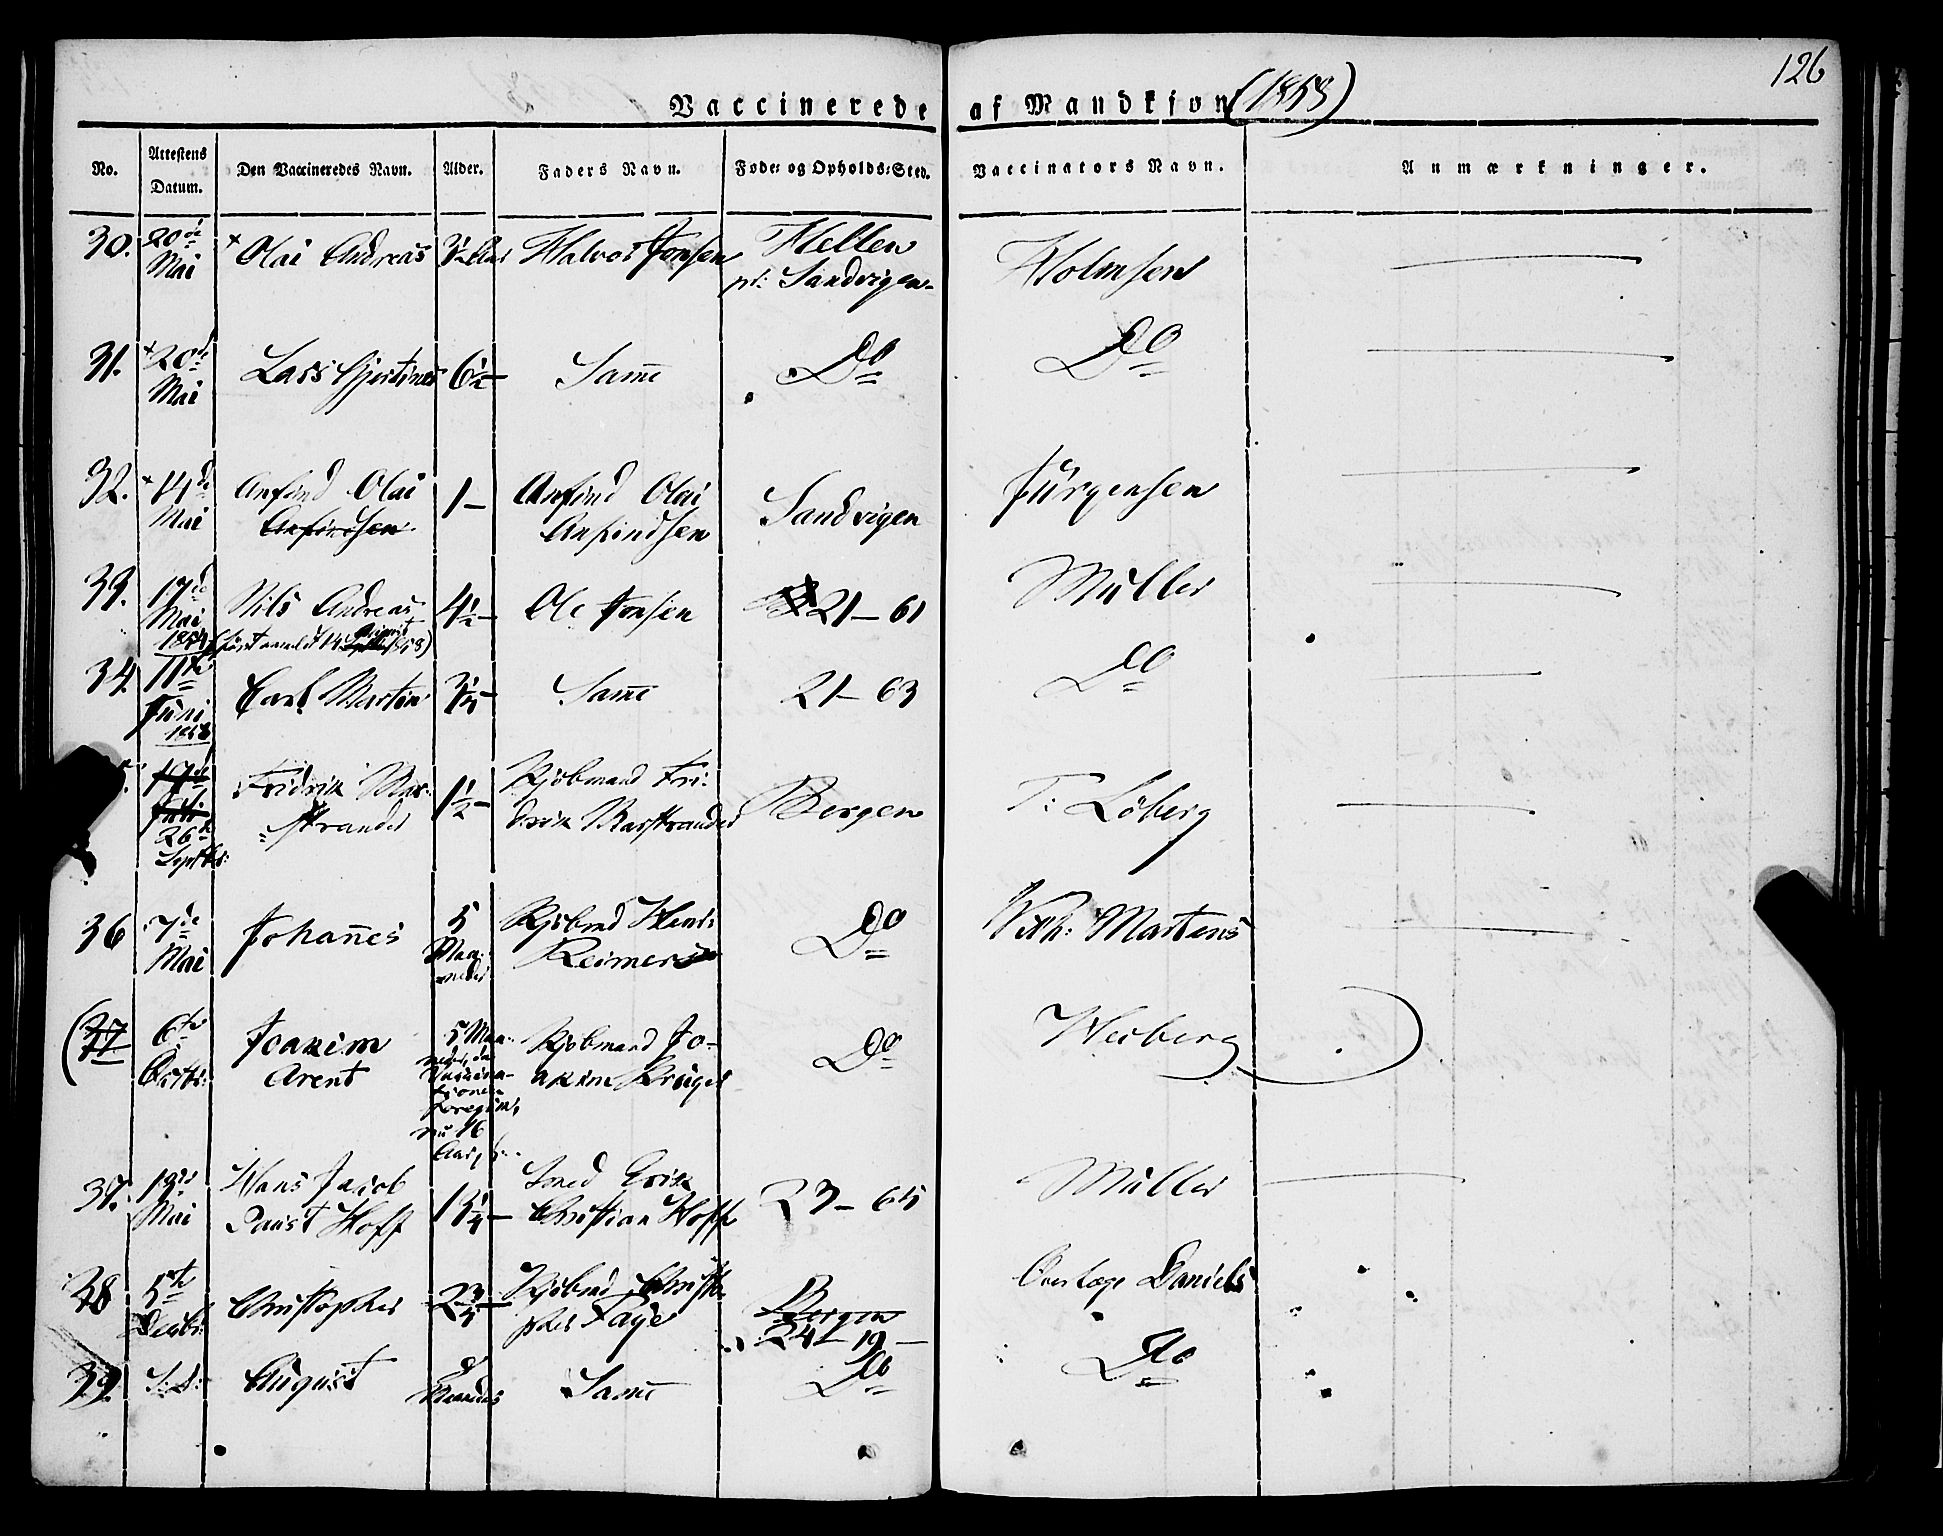 126
Vaccinerede af Mandkjøn (1858)
No. Attestens Datum. Den Vaccineredes Navn. Alder. Faders Navn. Føde- og Opholds-Sted. Vaccinators Navn. Anmærkninger.
30. 20de Mai Olai Andreas 3½ Halvor Jonsen Hellen pt: Sandvigen Holmsen
31. 20de Mai Lars Gjertinus 6½ Samme Do Do
32. 14de Mai Anfind Olai Anfindsen 1 Anfind Olai Anfindsen Sandvigen Jürgensen
33. 17de Mai 1854 Nils Andreas 4½ Ole Jonsen 21–61 Müller
34. 11te Juni 1858 Carl Martin 3¼ Samme 21–63 Do
17de Juli 26de Septbr: Fridrik Marstrander 1½ Kjøbmand Fridrik Marstrander Bergen T: Löberg
36 7de Mai Johannes 5 Maaneder Kjøbmd Henr: Reimers Do Wilh: Martens
(37 6te Octbr: Joakim Arent 5 Maaneder, da Vaccinationen foregik, nu 16 Aar Kjøbmand Joakim Krüger Do Weiberg )
37. 19de Mai Hans Jacob Paust Hoff 1¼ Smed Erik Christian Hoff 23–65 Müller
38 5te Decbr: Christopher 2¾ Kjøbmd Christopher Faye Bergen 24–19 Overlæge Daniels
39. S: D: August 8 Maaneder Samme Do Do